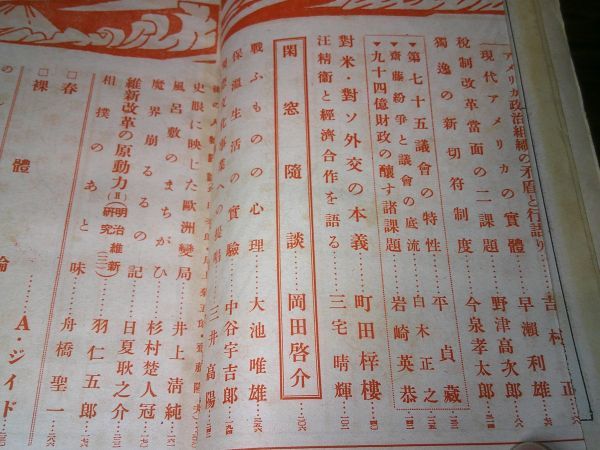 アメリカ政治組織の矛盾と行詰り……吉村正
現代アメリカの實體……早瀬利雄
稅制改革當面の二課題……野津高次郎
獨逸の新切符制度……今泉孝太郎
▼第七十五議會の特性……平貞藏
▼齋藤紛爭と議會の底流……白木正之
▼九十四億財政の釀す諸課題……岩崎英恭
對米・對ソ外交の本義……町田梓樓
汪精衞と經濟合作を語る……三宅晴輝
閑窓隨談……岡田啓介
戰ふものの心理……大池唯雄
保溫生活の實驗……中谷宇吉郎
三井高陽
史眼に映じた歐洲變局……井上清純
風呂敷のまちがひ……杉村楚人冠
魔界崩るるの記……日夏耿之介
維新改革の原動力(Ⅱ)(明治維新研究三)……羽仁五郎
相撲のあと味……舟橋聖一
□春
□裸體……A・ジイド